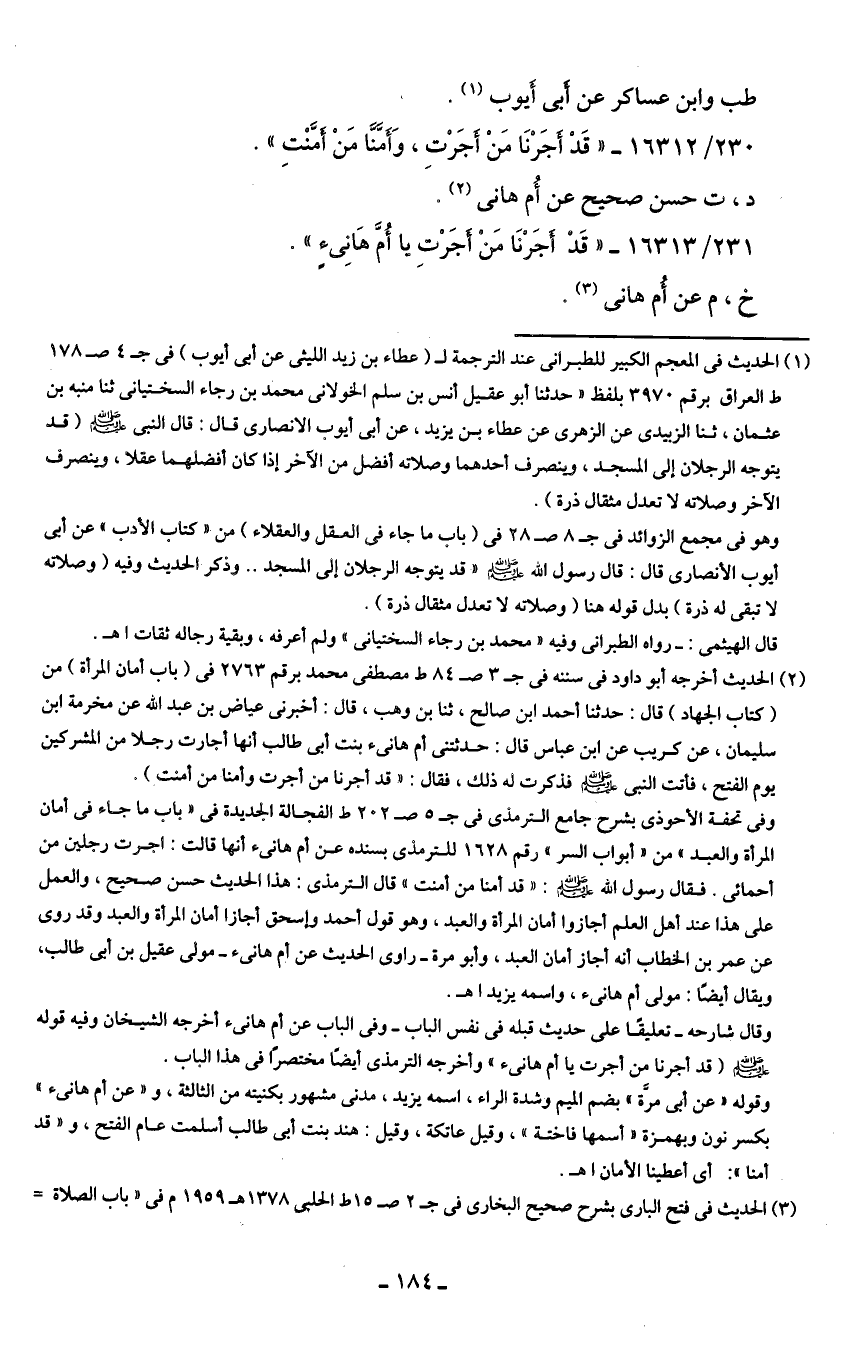 طب وابن عساكر عن أَبى أَيوب (١) .
٢٣٠/ ١٦٣١٢ ـ « قَدْ أَجَرْنَا مَنْ أَجَرْتِ ، وَأَمَّنَّا مَنْ أَمَّنْتِ » .
د ، ت حسن صحيح عن أُم هانى (٢) .
٢٣١/ ١٦٣١٣ ـ « قَدْ أَجَرْنَا مَنْ أَجَرْتِ يا أُمَّ هَانِىءٍ » .
خ ، م عن أُم هانى (٣) .
(١) الحديث فى المعجم الكبير للطبرانى عند الترجمة لـ ( عطاء بن زيد الليثى عن أبى أيوب ) فى جـ ٤ صـ ١٧٨
ط العراق برقم ٣٩٧٠ بلفظ « حدثنا أبو عقيل أنس بن سلم الخولانى محمد بن رجاء السختيانى ثنا منبه بن
عثمان ، ثنا الزبيدى عن الزهرى عن عطاء بن يزيد ، عن أبى أيوب الانصارى قال : قال النبى ﷺ ( قد
يتوجه الرجلان إلى المسجد ، وينصرف أحدهما وصلاته أفضل من الآخر إذا كان أفضلهما عقلا ، وينصرف
الآخر وصلاته لا تعدل مثقال ذرة ) .
وهو فى مجمع الزوائد فى جـ ٨ صـ ٢٨ فى ( باب ما جاء فى العقل والعقلاء ) من « كتاب الأدب » عن أبى
أيوب الأنصارى قال : قال رسول الله ﷺ « قد يتوجه الرجلان إلى المسجد .. وذكر الحديث وفيه ( وصلاته
لا تبقى له ذرة ) بدل قوله هنا ( وصلاته لا تعدل مثقال ذرة ) .
قال الهيثمى : ـ رواه الطبرانى وفيه « محمد بن رجاء السختيانى » ولم أعرفه ، وبقية رجاله ثقات ا هـ .
(٢) الحديث أخرجه أبو داود فى سننه فى جـ ٣ صـ ٨٤ ط مصطفى محمد برقم ٢٧٦٣ فى ( باب أمان المرأة ) من
( كتاب الجهاد ) قال : حدثنا أحمد ابن صالح ، ثنا بن وهب ، قال : أخبرنى عياض بن عبد الله عن مخرمة ابن
سليمان ، عن كريب عن ابن عباس قال : حدثتنى أم هانىء بنت أبى طالب أنها أجارت رجلا من المشركين
يوم الفتح ، فأتت النبى ﷺ فذكرت له ذلك ، فقال : « قد أجرنا من أجرت وأمنا من أمنت ) .
وفى تحفة الأحوذى بشرح جامع الترمذى فى جـ ٥ صـ ٢٠٢ ط الفجالة الجديدة فى « باب ما جاء فى أمان
المرأة والعبد » من « أبواب السر » رقم ١٦٢٨ للترمذى بسنده عن أم هانىء أنها قالت : اجرت رجلين من
أحمائى . فقال رسول الله ﷺ : « قد أمنا من أمنت » قال الترمذى : هذا الحديث حسن صحيح ، والعمل
على هذا عند أهل العلم أجازوا أمان المرأة والعبد ، وهو قول أحمد وإسحق أجازا أمان المرأة والعبد وقد روى
عن عمر بن الخطاب أنه أجاز أمان العبد ، وأبو مرة ـ راوى الحديث عن أم هانىء ـ مولى عقيل بن أبى طالب،
ويقال أيضًا : مولى أم هانىء ، واسمه يزيد ا هـ .
وقال شارحه ـ تعليقًا على حديث قبله فى نفس الباب ـ وفى الباب عن أم هانىء أخرجه الشيخان وفيه قوله
ﷺ ( قد أجرنا من أجرت يا أم هانىء » وأخرجه الترمذى أيضًا مختصرًا فى هذا الباب .
وقوله « عن أبى مرَّة » بضم الميم وشدة الراء ، اسمه يزيد ، مدنى مشهور بكنيته من الثالثة ، و « عن أم هانىء »
بكسر نون وبهمزة « أسمها فاختة » ، وقيل عاتكة ، وقيل : هند بنت أبى طالب أسلمت عام الفتح ، و « قد
أمنا »: أى أعطينا الأمان ا هـ .
(٣) الحديث فى فتح البارى بشرح صحيح البخارى فى جـ ٢ صـ ١٥ط الحلبى ١٣٧٨هـ ١٩٥٩ م فى « باب الصلاة =
ـ ١٨٤ ـ